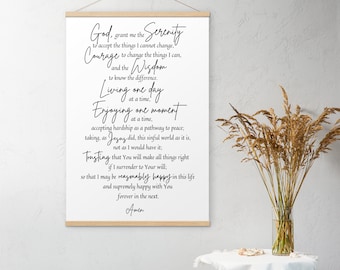 God, grant me the Serenity
to accept the things I cannot change,
Courage to change the things I can,
and the Wisdom
to know the difference.
Living one day
at a time,
Enjoying one moment
at a time,
accepting hardship as a pathway to peace,
taking, as Jesus did, this sinful world as it is,
not as I would have it;
Trusting that You will make all things right
if I surrender to Your will,
so that I may be reasonably happy in this life
and supremely happy with You
forever in the next.
Amen